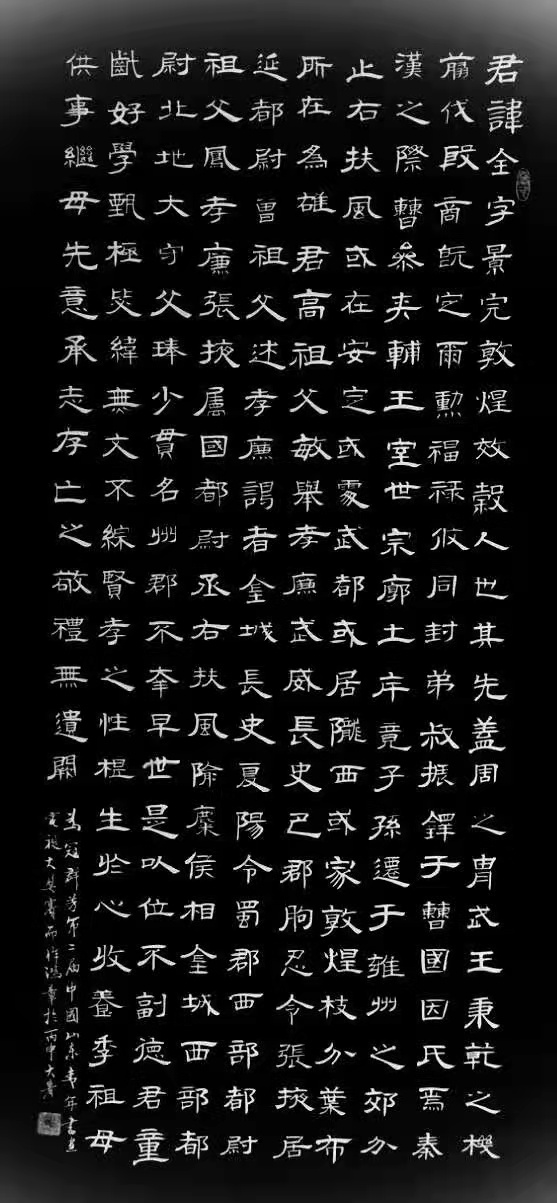 君諱全字景完敦煌效穀人也其先蓋周之胄武王秉乾之機
翦伐殷商既定爾勳福祿攸同封弟叔振鐸于曹國因氏焉秦
漢之際曹參夾輔王室世宗廓土斥竟子孫遷于雍州之郊分
止右扶風或在安定或處武都或居隴西或家敦煌枝分葉布
所在為雄君高祖父敏舉孝廉武威長史巴郡朐忍令張掖居
延都尉曾祖父述孝廉謁者金城長史夏陽令蜀郡西部都尉
祖父鳳孝廉張掖屬國都尉丞右扶風隃糜侯相金城西部都
尉北地大守父琫少貫名州郡不幸早世是以位不副德君童
齔好學甄極毖緯無文不綜賢孝之性根生於心收養季祖母
供事繼母先意承志存亡之敬禮無遺闕
为冠群芳第二届中國山东青年書画
電視大奖賽而作鴻章於丙申大暑